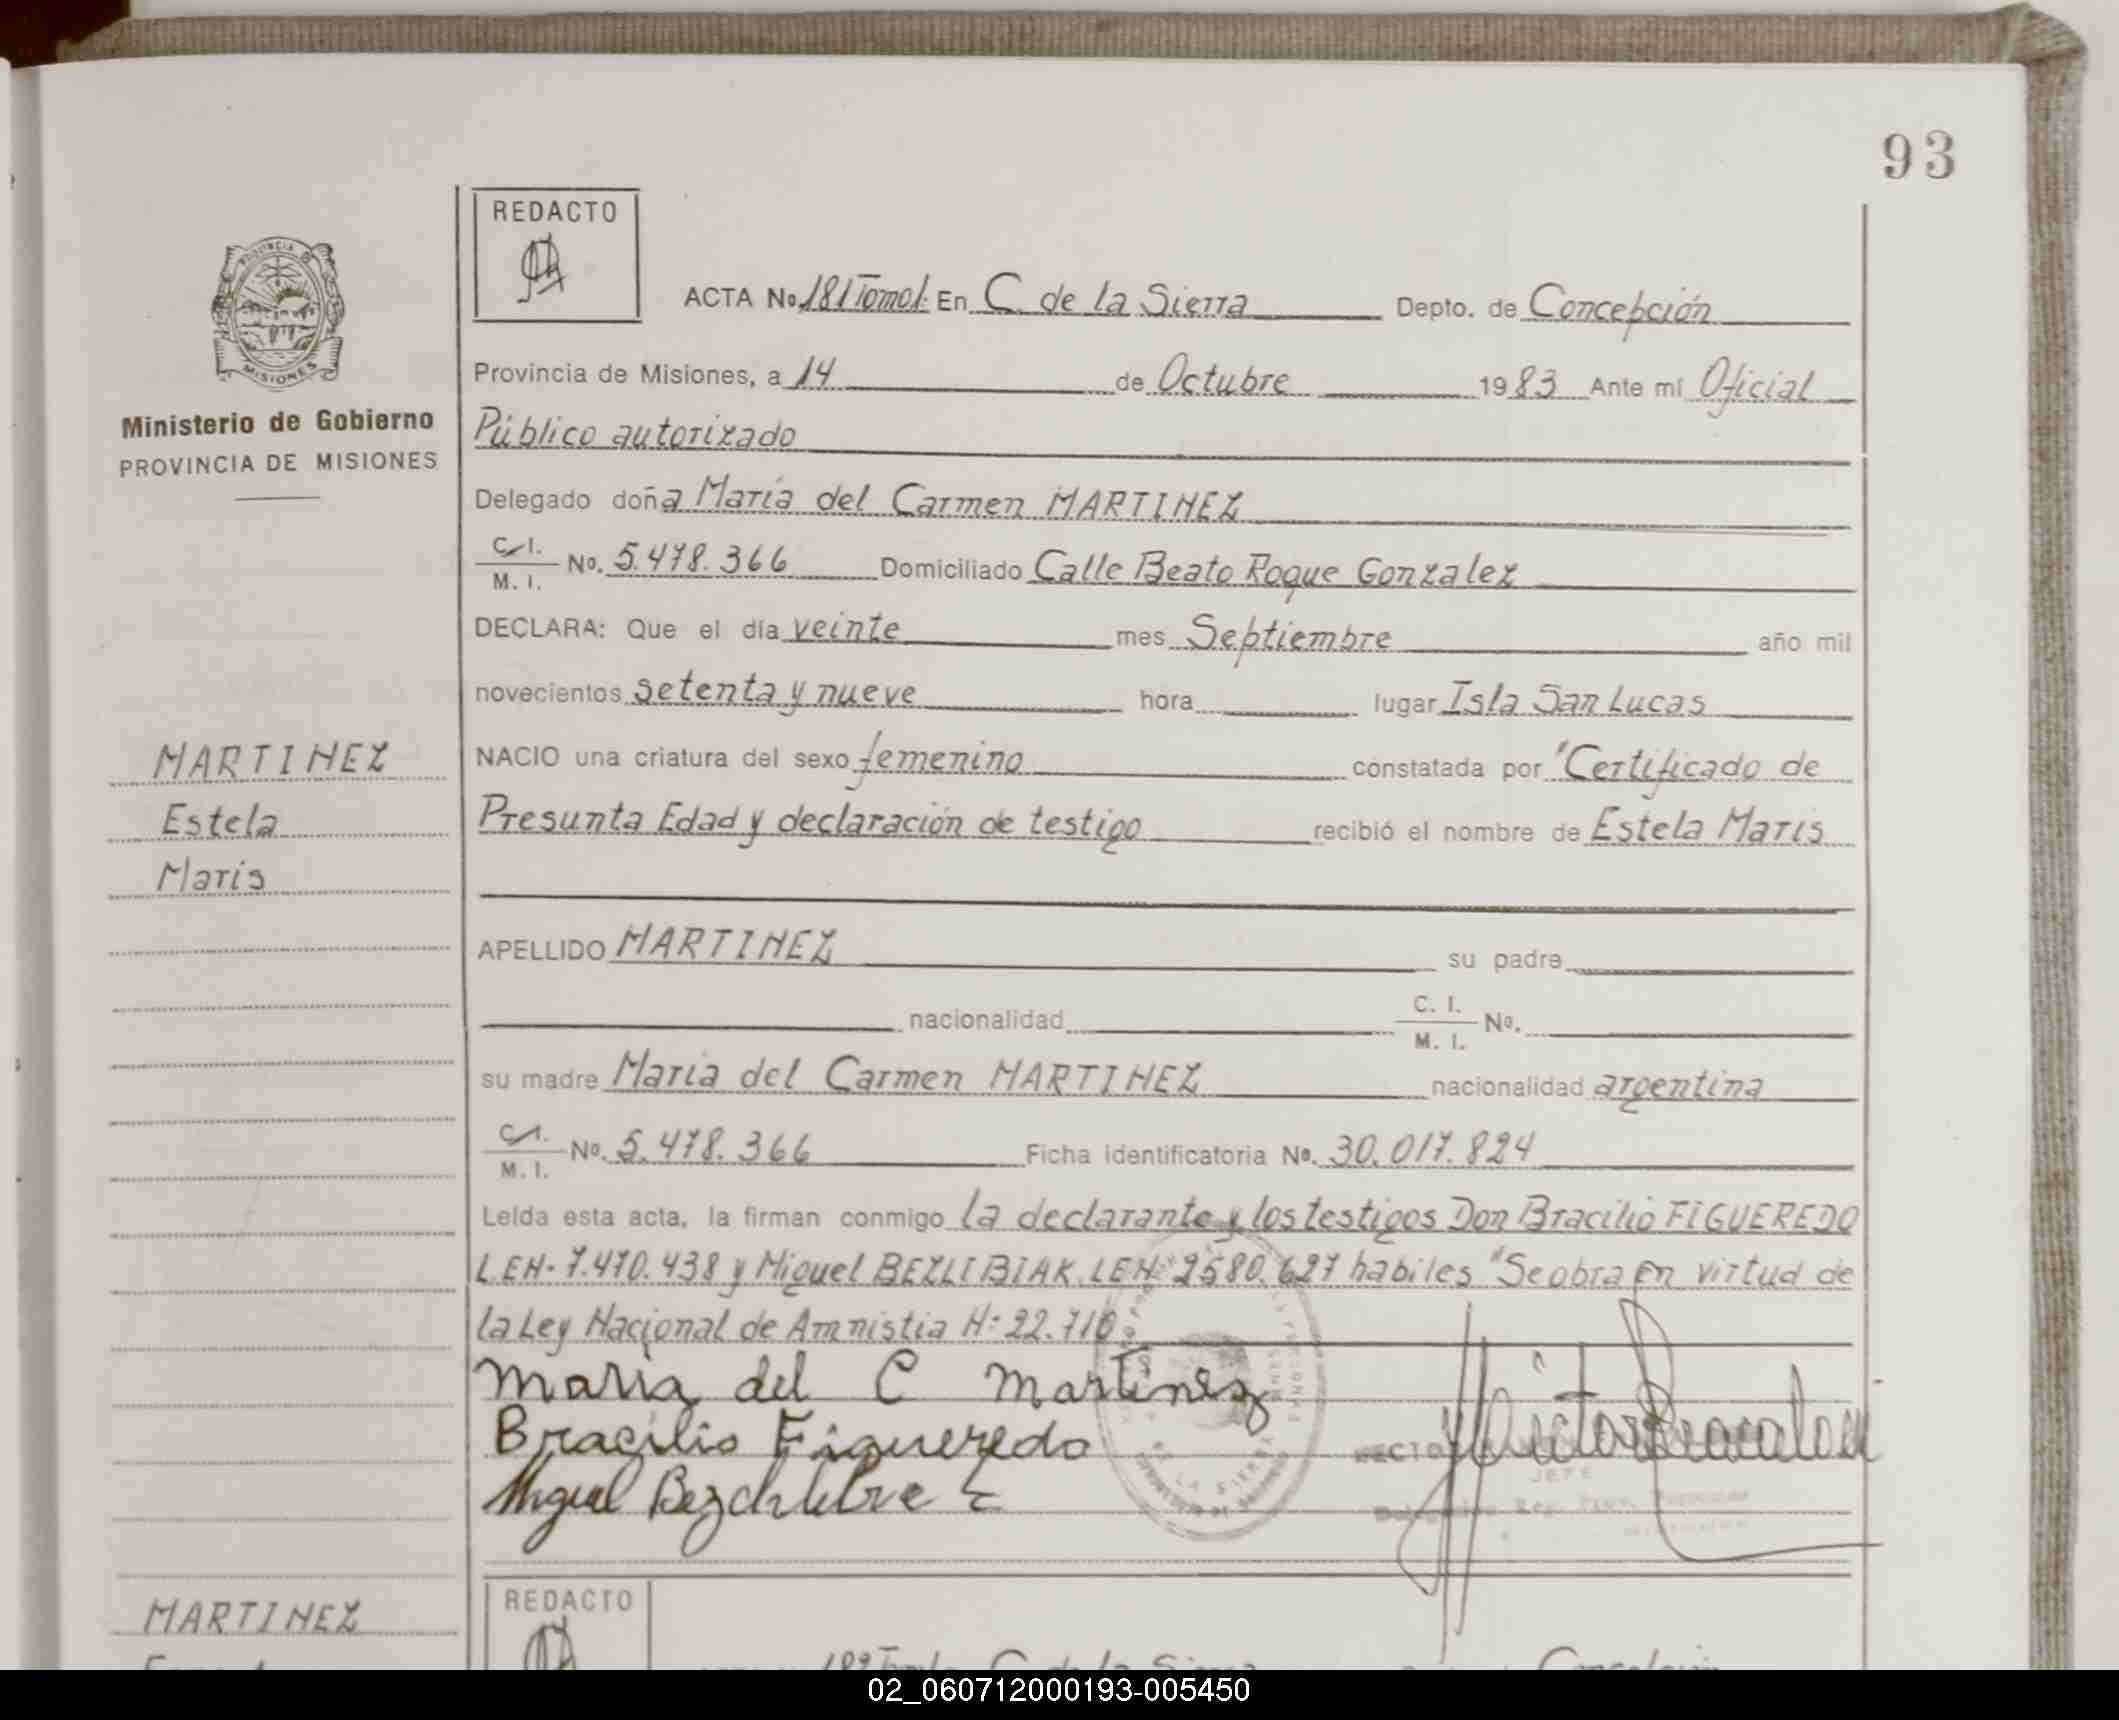 93
REDACTO
PROVINCIA DE
MISIONES
Ministerio de Gobierno
PROVINCIA DE MISIONES
ACTA No 181 Tomo I. En C. de la Sierra Depto. de Concepción
Provincia de Misiones, a 14 de Octubre 1983 Ante mí Oficial
Público autorizado
Delegado doña María del Carmen MARTINEZ
C. I. / M. I. No. 5.478.366 Domiciliado Calle Beato Roque Gonzalez
DECLARA: Que el día veinte mes Septiembre año mil
novecientos setenta y nueve hora lugar Isla San Lucas
NACIO una criatura del sexo femenino constatada por "Certificado de
Presunta Edad y declaración de testigo recibió el nombre de Estela Maris
MARTINEZ
Estela
Maris
APELLIDO MARTINEZ su padre
nacionalidad C. I. / M. I. No.
su madre María del Carmen MARTINEZ nacionalidad argentina
C. I. / M. I. No. 5.478.366 Ficha identificatoria No. 30.017.824
Leída esta acta, la firman conmigo la declarante y los testigos Don Bracilio FIGUEREDO
L.EN- 7.470.438 y Miguel BEZLIBIAK L.EN- 2580.627 habiles "Se obra en virtud de
la Ley Nacional de Amnistia N: 22.710
Maria del C Martinez
Bracilio Figueredo
Miguel
JEFE
MARTINEZ
REDACTO
02_060712000193-005450